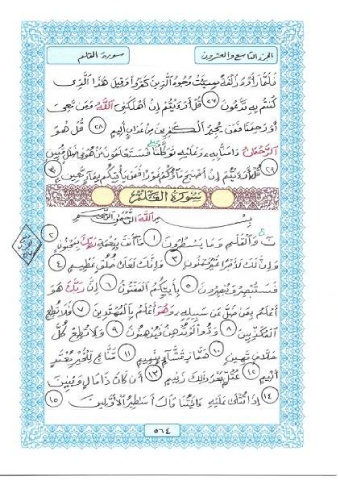 الجزء التاسع والعشرون
سورة القلم
فَلَمَّا رَأَوْهُ زُلْفَةً سِيٓـَٔتْ وُجُوهُ الَّذِينَ كَفَرُوا وَقِيلَ هَٰذَا الَّذِي
كُنتُم بِهِ تَدَّعُونَ ٢٧ قُلْ أَرَءَيْتُمْ إِنْ أَهْلَكَنِيَ اللَّهُ وَمَن مَّعِيَ
أَوْ رَحِمَنَا فَمَن يُجِيرُ الْكَٰفِرِينَ مِنْ عَذَابٍ أَلِيمٍ ٢٨ قُلْ هُوَ
الرَّحْمَٰنُ ءَامَنَّا بِهِ وَعَلَيْهِ تَوَكَّلْنَا فَسَتَعْلَمُونَ مَنْ هُوَ فِي ضَلَٰلٍ مُّبِينٍ
٢٩ قُلْ أَرَءَيْتُمْ إِنْ أَصْبَحَ مَاؤُكُمْ غَوْرًا فَمَن يَأْتِيكُم بِمَاءٍ مَّعِينٍ ٣٠
سُورَةُ الْقَلَمِ
بِسْمِ اللَّهِ الرَّحْمَٰنِ الرَّحِيمِ
ن وَالْقَلَمِ وَمَا يَسْطُرُونَ ١ مَا أَنتَ بِنِعْمَةِ رَبِّكَ بِمَجْنُونٍ ٢
وَإِنَّ لَكَ لَأَجْرًا غَيْرَ مَمْنُونٍ ٣ وَإِنَّكَ لَعَلَىٰ خُلُقٍ عَظِيمٍ ٤
فَسَتُبْصِرُ وَيُبْصِرُونَ ٥ بِأَييِّكُمُ الْمَفْتُونُ ٦ إِنَّ رَبَّكَ هُوَ
أَعْلَمُ بِمَن ضَلَّ عَن سَبِيلِهِ وَهُوَ أَعْلَمُ بِالْمُهْتَدِينَ ٧ فَلَا تُطِعِ
الْمُكَذِّبِينَ ٨ وَدُّوا لَوْ تُدْهِنُ فَيُدْهِنُونَ ٩ وَلَا تُطِعْ كُلَّ
حَلَّافٍ مَّهِينٍ ١٠ هَمَّازٍ مَّشَّاءٍ بِنَمِيمٍ ١١ مَّنَّاعٍ لِّلْخَيْرِ مُعْتَدٍ
أَثِيمٍ ١٢ عُتُلٍّ بَعْدَ ذَٰلِكَ زَنِيمٍ ١٣ أَن كَانَ ذَا مَالٍ وَبَنِينَ
١٤ إِذَا تُتْلَىٰ عَلَيْهِ ءَايَٰتُنَا قَالَ أَسَٰطِيرُ الْأَوَّلِينَ ١٥
٥٦٤